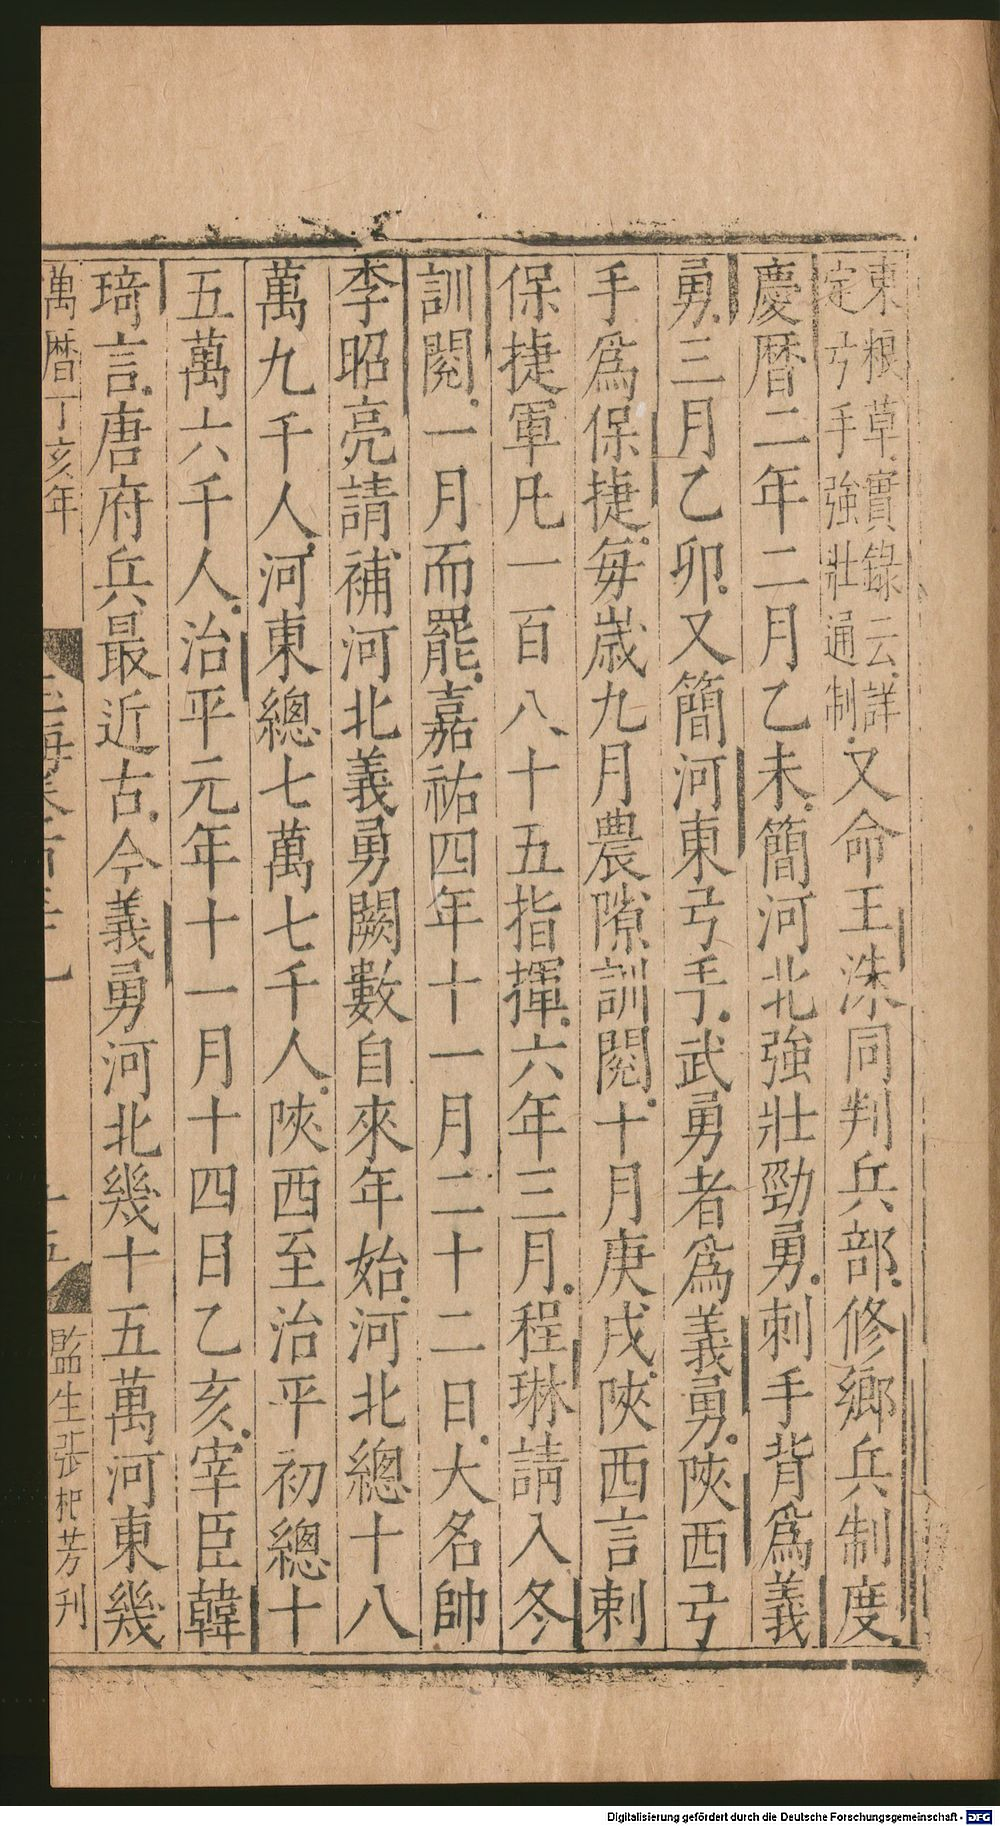 東根草實錄云詳
定弓手強壯通制又命王洙同判兵部修鄉兵制度
慶曆二年二月乙未簡河北強壯勁勇刺手背爲義
勇三月乙卯又簡河東弓手武勇者爲義勇陝西弓
手爲保捷每歲九月農隙訓閱十月庚戌陝西言剌
保捷軍凡一百八十五指揮六年三月程琳請入冬
訓閱一月而罷嘉祐四年十一月二十二日大名帥
李昭亮請補河北義勇闕數自來年始河北總十八
萬九千人河東總七萬七千人陝西至治平初總十
五萬六千人治平元年十一月十四日乙亥宰臣韓
琦言唐府兵最近古今義勇河北幾十五萬河東幾
萬曆丁亥年
十五
監生張杞芳刊
Digitalisierung gefördert durch die Deutsche Forschungsgemeinschaft - DFG